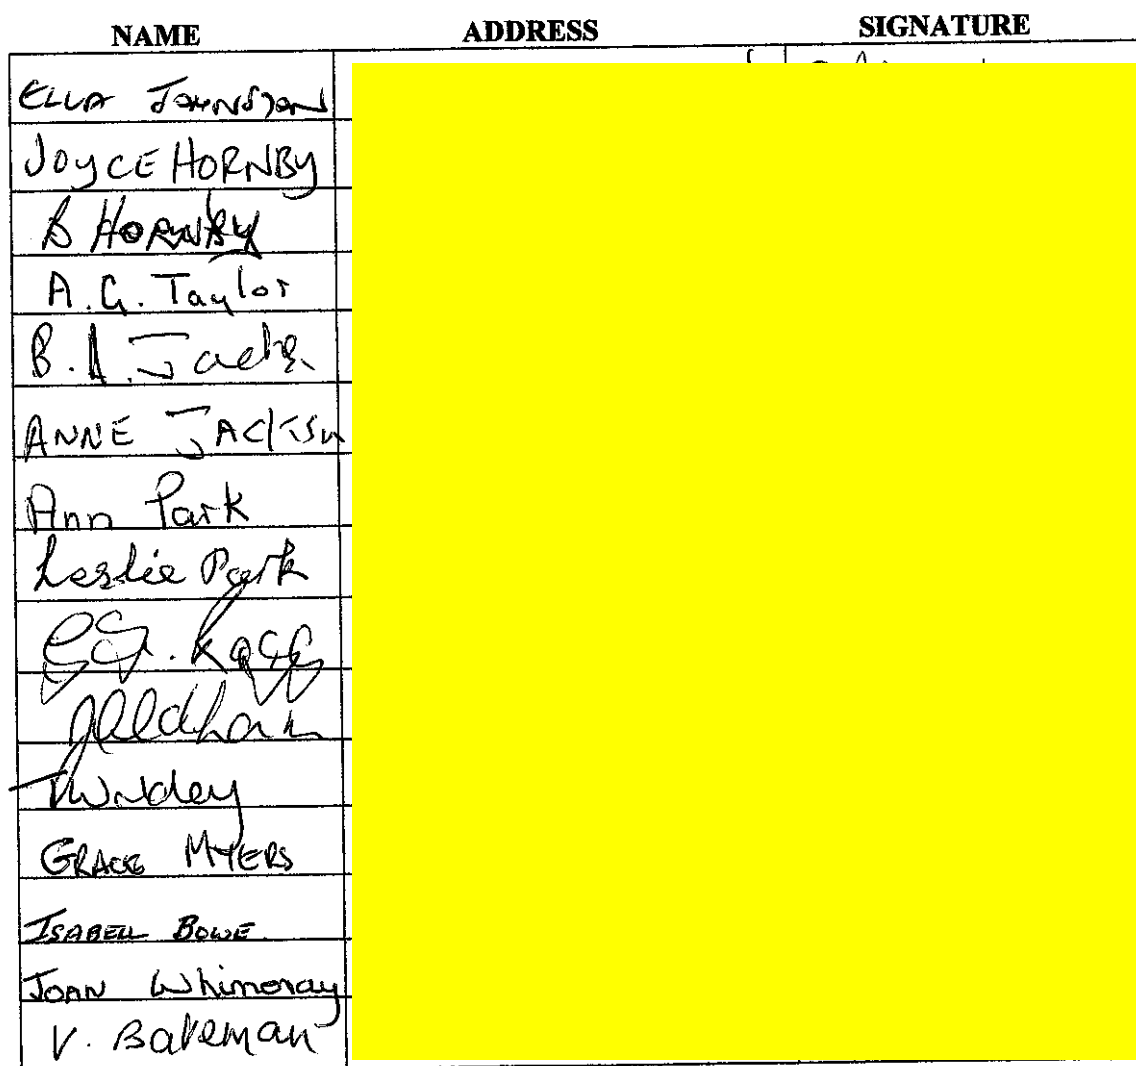 NAME ADDRESS SIGNATURE
ELLA JOHNSTON
JOYCE HORNBY
B HORNBY
A.G. Taylor
B.A. Jack
ANNE JACKSON
Ann Park
Leslie Park
Oldham
GRACE MYERS
ISABELL BOWE.
JOAN Whimoray
V. Bateman